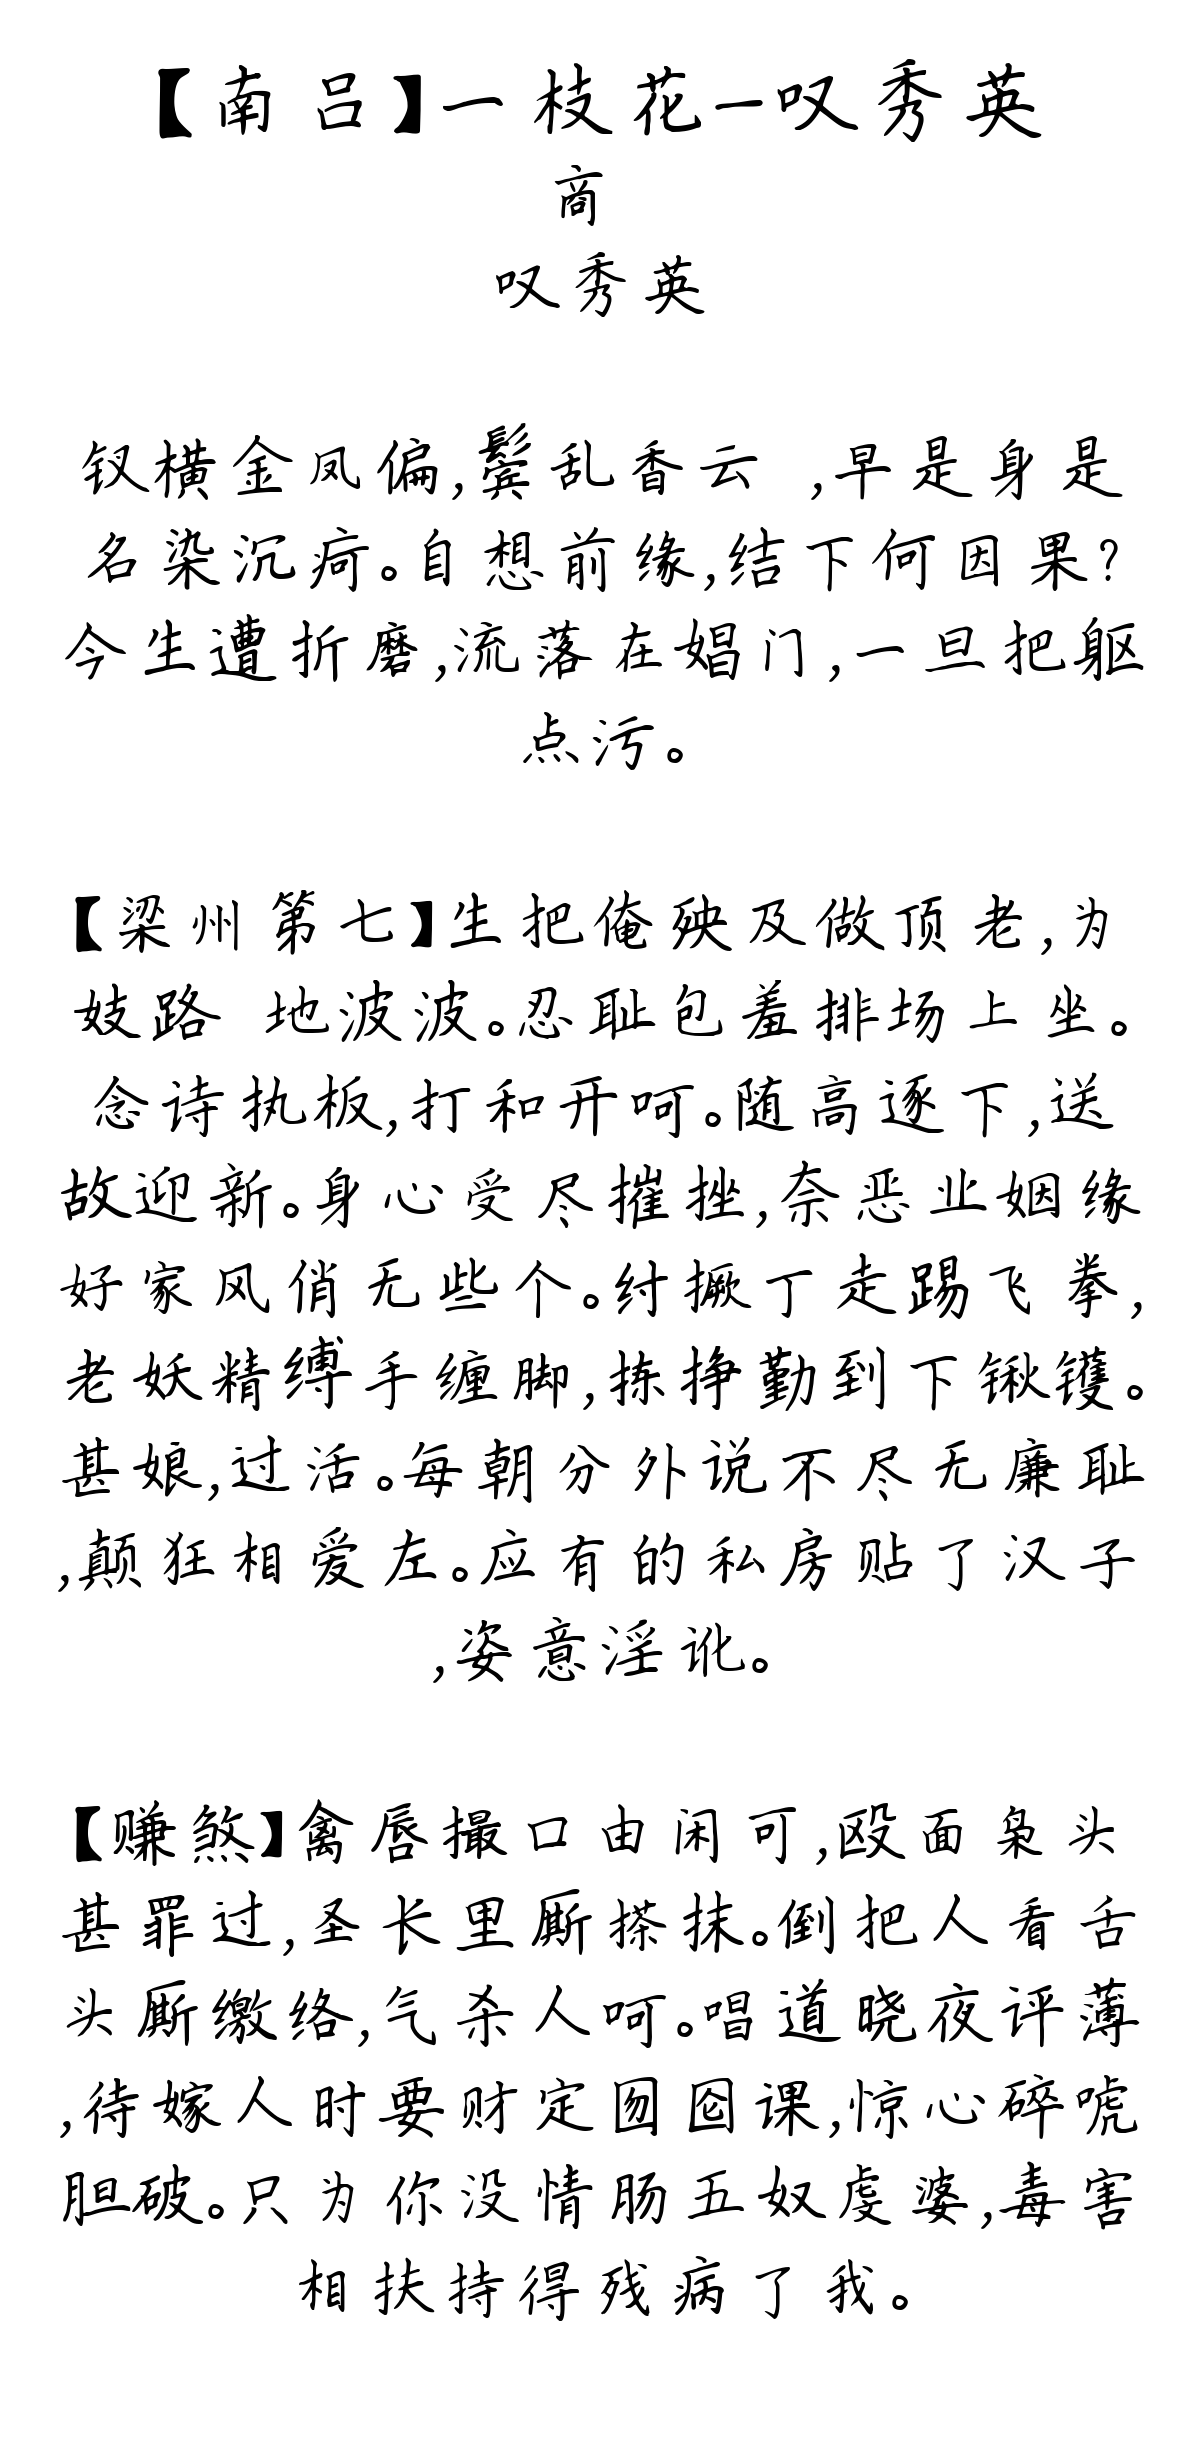 【南吕】一枝花-叹秀英
商
叹秀英
钗横金凤偏,鬓乱香云 ,早是身是
名染沉疴。自想前缘,结下何因果?
今生遭折磨,流落在娼门,一旦把躯
点污。
【梁州第七】生把俺殃及做顶老,为
妓路 地波波。忍耻包羞排场上坐。
念诗执板,打和开呵。随高逐下,送
故迎新。身心受尽摧挫,奈恶业姻缘
好家风俏无些个。纣撅丁走踢飞拳,
老妖精缚手缠脚,拣挣勤到下锹镬。
甚娘,过活。每朝分外说不尽无廉耻
,颠狂相爱左。应有的私房贴了汉子
,姿意淫讹。
【赚煞】禽唇撮口由闲可,殴面枭头
甚罪过,圣长里厮搽抹。倒把人看舌
头厮缴络,气杀人呵。唱道晓夜评薄
,待嫁人时要财定囫囵课,惊心碎唬
胆破。只为你没情肠五奴虔婆,毒害
相扶持得残病了我。